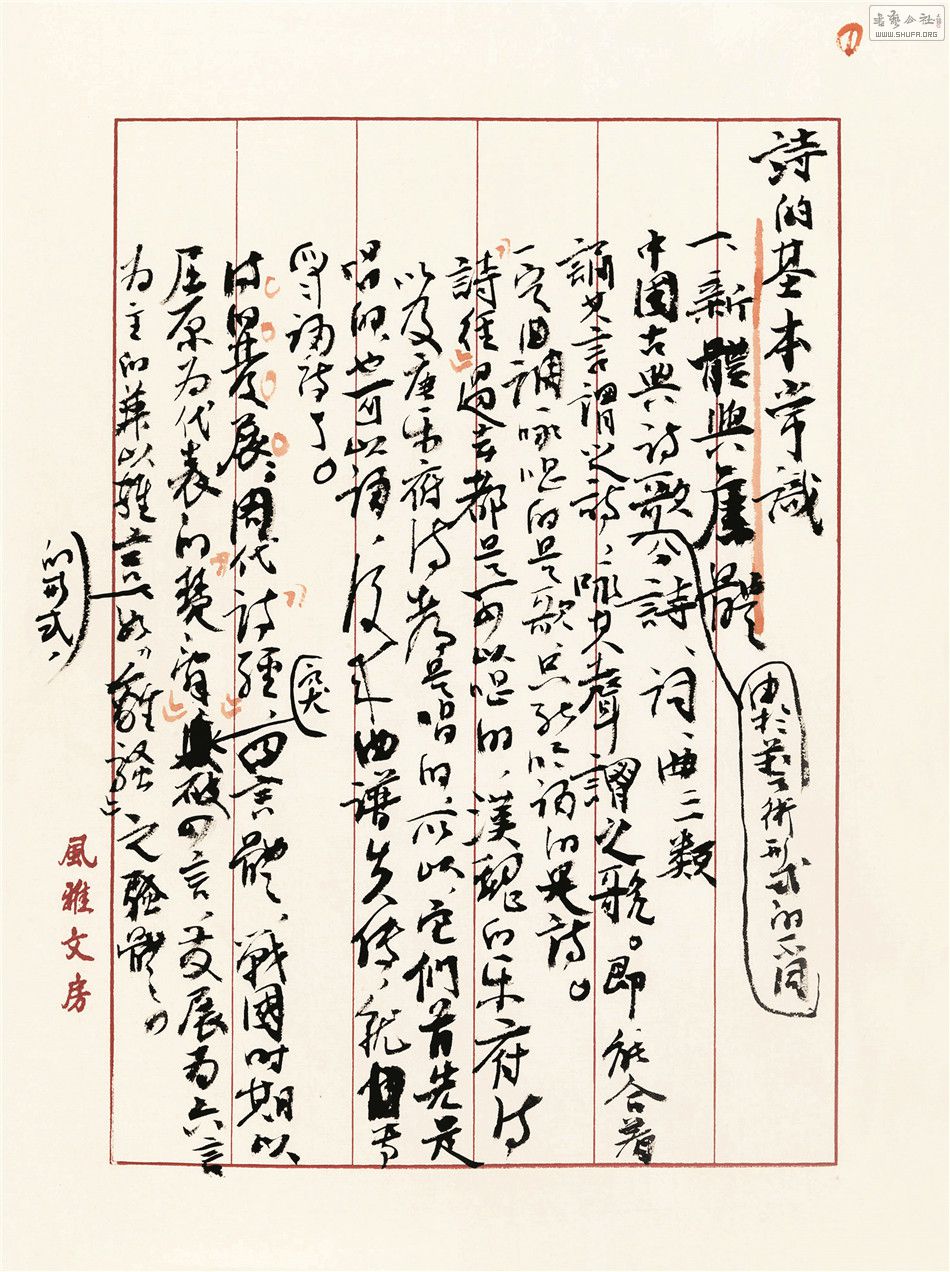 詩的基本常識
一、新體與舊體
由於藝術形式的不同
中國古典詩歌分詩、詞、曲三類
誦其言謂之詩,詠其聲謂之歌。即能合着
一定曲調詠唱的是歌,只能吟誦的是詩。
詩經過去都是可以唱的,漢魏的乐府诗
以及唐乐府诗都是唱的,所以,它們首先是
唱的,也可以诵,後来曲譜失传,就
成诵诗了。
诗的發展:周代詩經,四言體,戰國时期以
屈原为代表的楚辭突破四言,發展为六言
为主的兼以雜言
的形式,
如离騷之騷體。
風雅文房
书艺公社
WWW.SHUFA.ORG